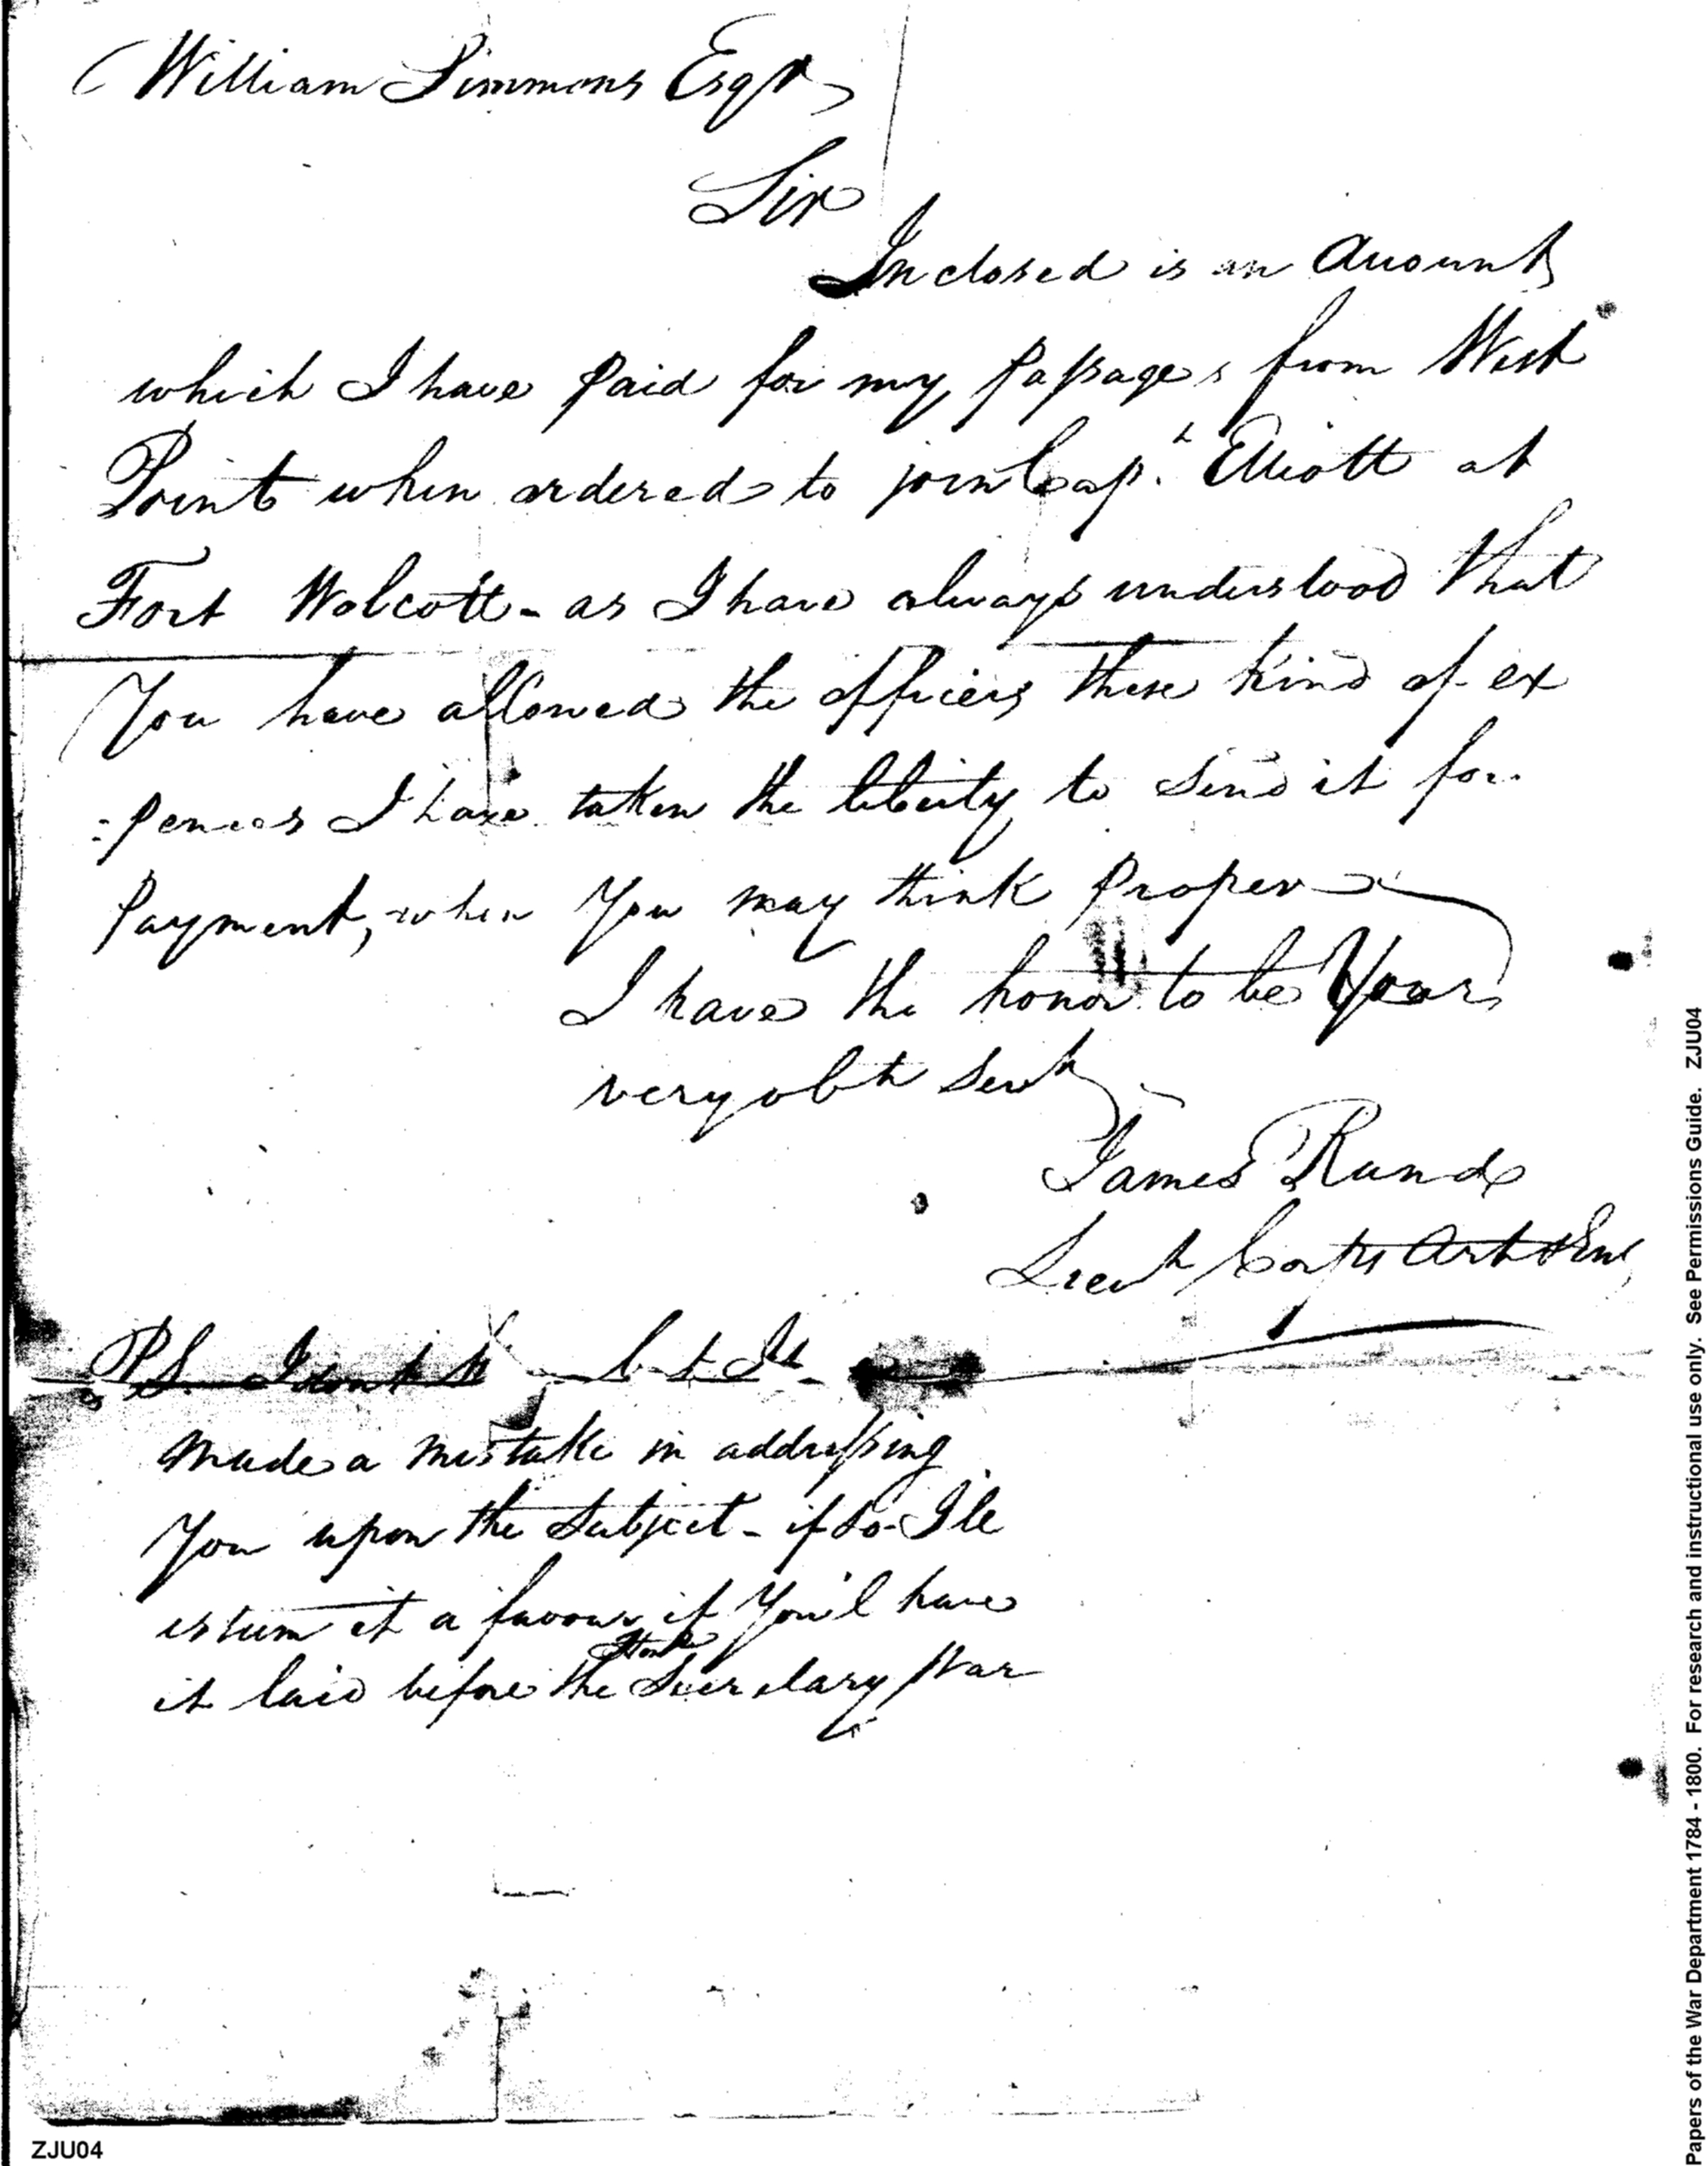 William Simmons Esqr
Sir
Inclosed is an Account
which I have paid for my passages from West
Point when ordered to join Capt. Elliott at
Fort Wolcott - as I have always understood that
You have allowed the officers these kind of ex
=pences I have taken the liberty to send it for
Payment, when You may think proper
I have the honor to be Your
very obt Servt
James Rand
Lieut Corps Art & Eng
PS. I dont but I
made a mistake in addressing
You upon the subject - if so - I'le
esteem it a favour if You'l have
it laid before the Secretary War
Papers of the War Department 1784 - 1800. For research and instructional use only. See Permissions Guide. ZJU04
ZJU04